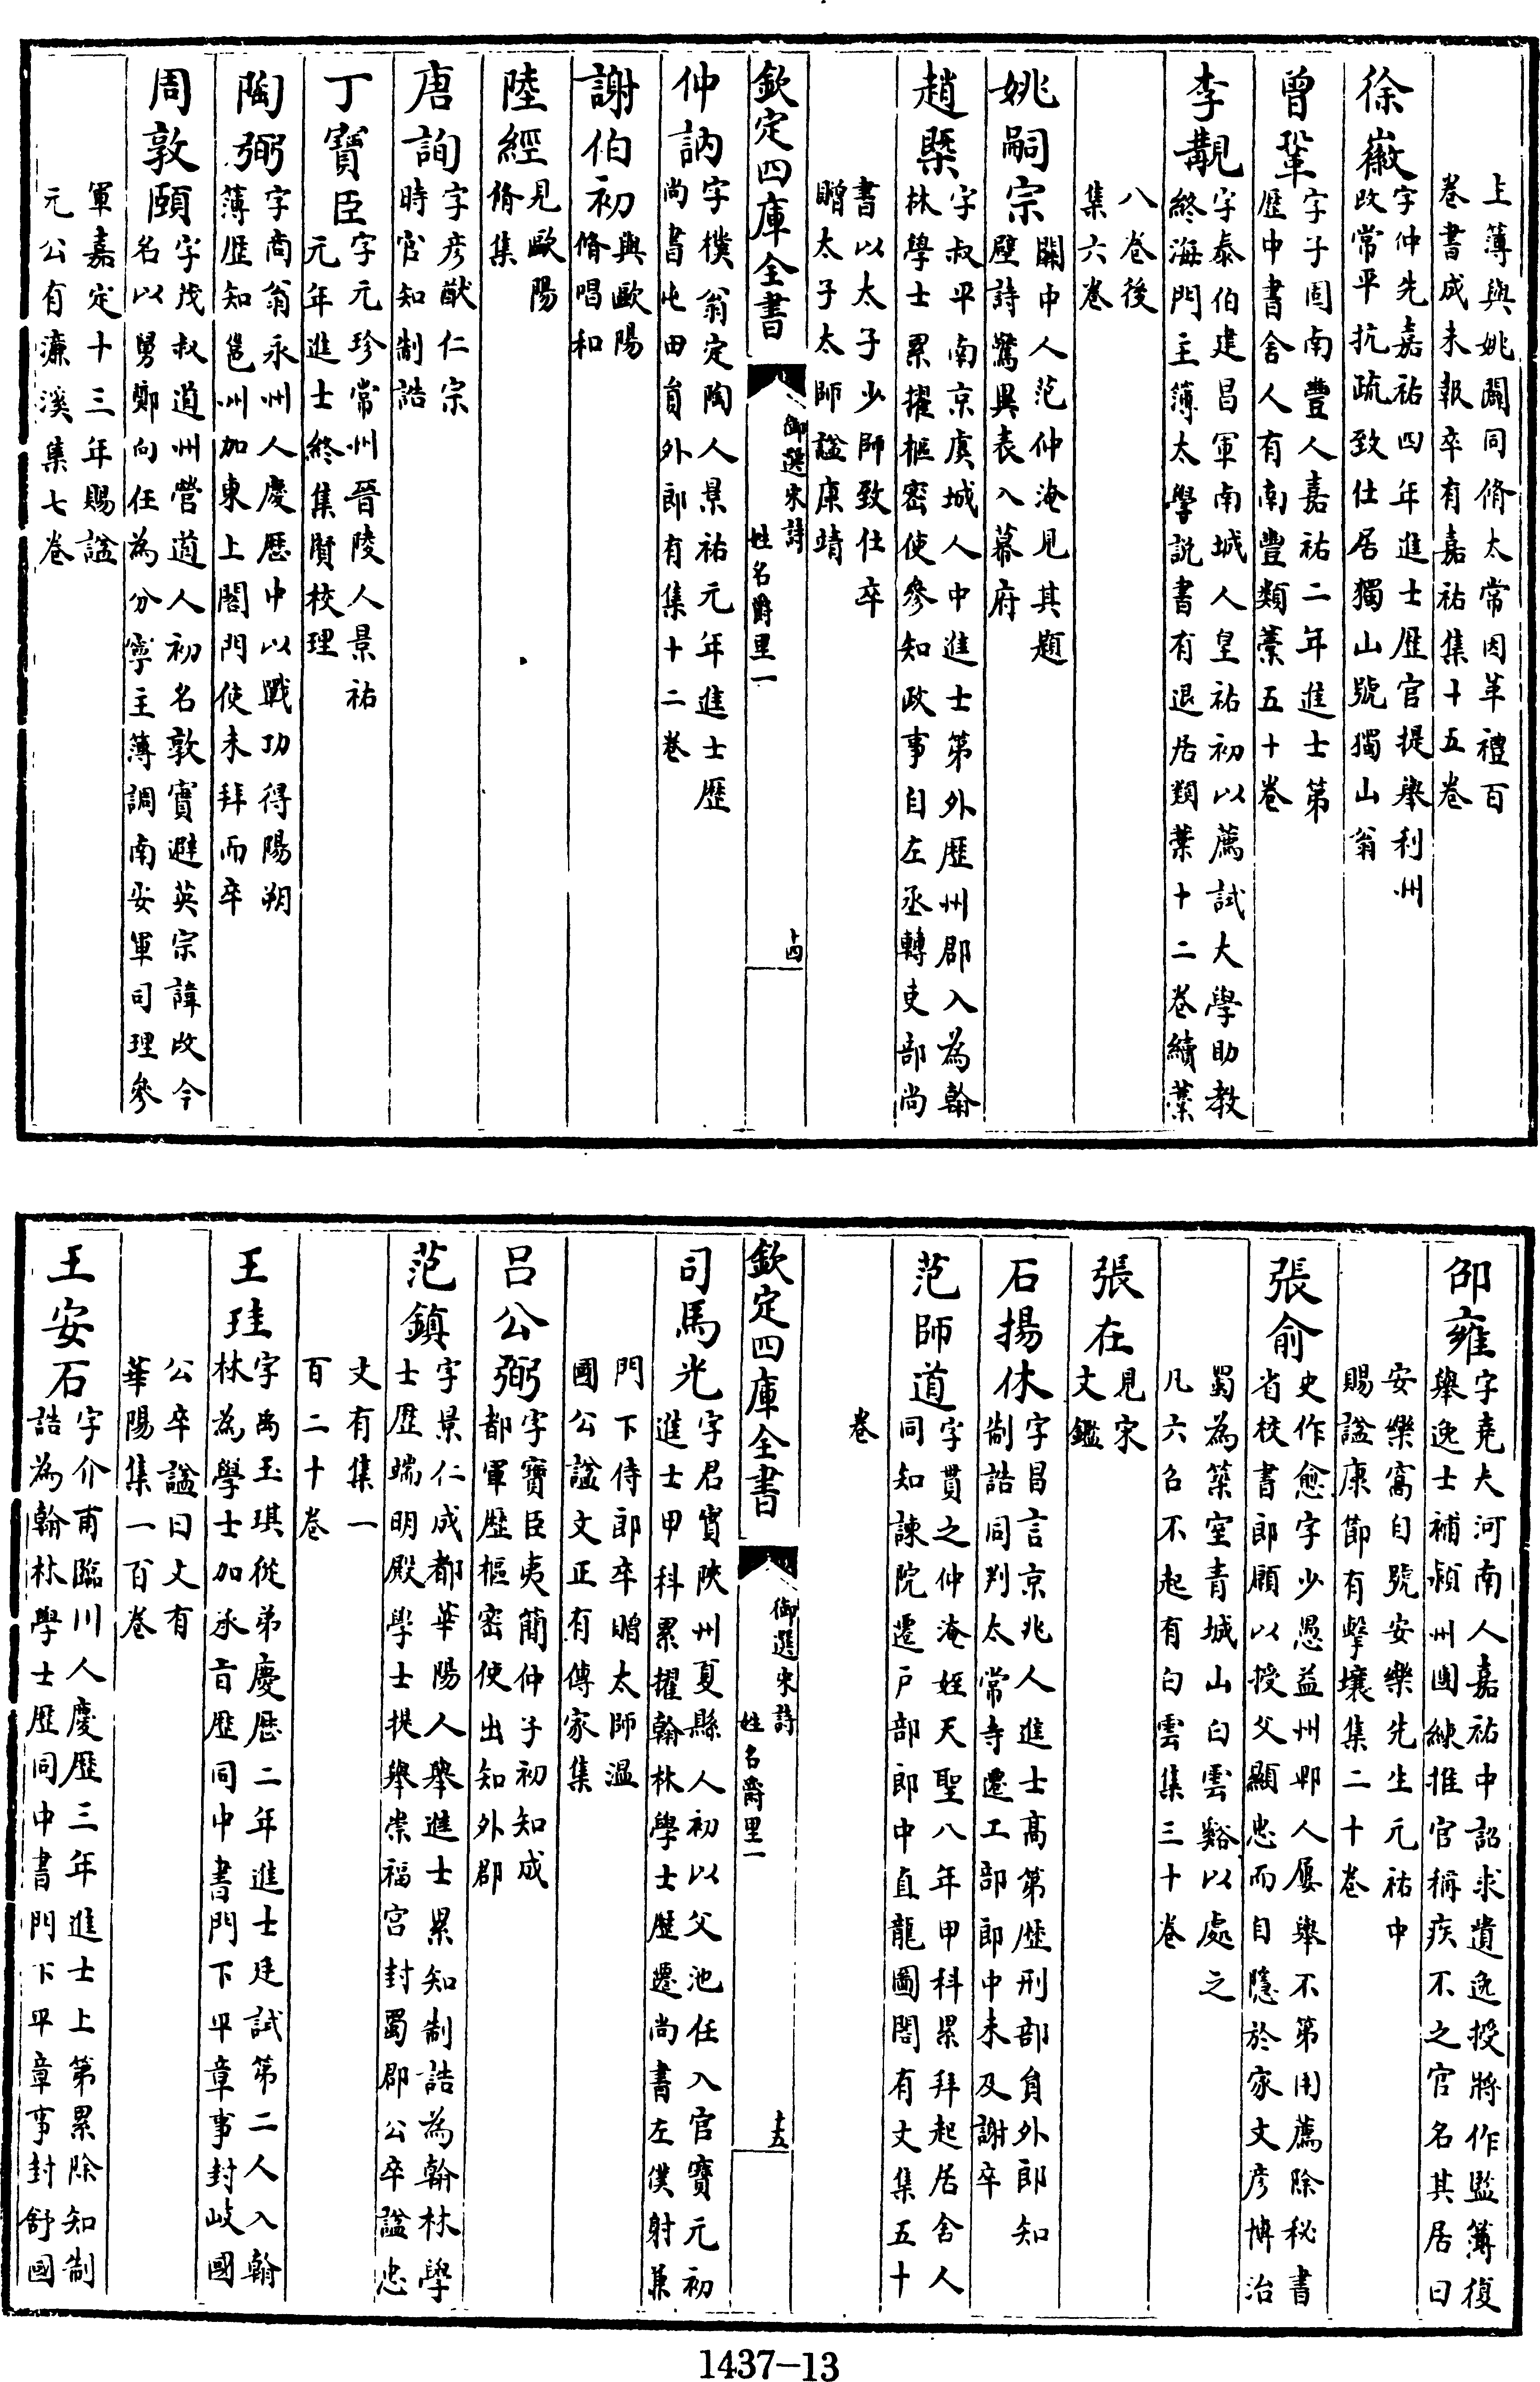 上簿與姚闢同脩太常因革禮百
卷書成未報卒有嘉祐集十五卷
徐徽
字仲先嘉祐四年進士歷官提舉利州
政常平抗疏致仕居獨山號獨山翁
曾鞏
字子固南豐人嘉祐二年進士第
歷中書舍人有南豐類藁五十卷
李覯
字泰伯建昌軍南城人皇祐初以薦試大學助教
終海門主簿太學說書有退居類藁十二卷續藁
八卷後
集六卷
姚嗣宗
關中人范仲淹見其題
壁詩驚異表入幕府
趙槩
字叔平南京虞城人中進士第外歷州郡入為翰
林學士累擢樞密使參知政事自左丞轉吏部尚
書以太子少師致仕卒
贈太子太師諡康靖
欽定四庫全書
御選宋詩
姓名爵里一
十四
仲訥
字樸翁定陶人景祐元年進士歷
尚書屯田員外郎有集十二卷
謝伯初
與歐陽
脩唱和
陸經
見歐陽
脩集
唐詢
字彥猷仁宗
時官知制誥
丁寶臣
字元珍常州晉陵人景祐
元年進士終集賢校理
陶弼
字商翁永州人慶歷中以戰功得陽朔
薄歷知邕州加東上閤門使未拜而卒
周敦頤
字茂叔道州營道人初名敦實避英宗諱改今
名以舅鄭向任為分寧主薄調南安軍司理參
軍嘉定十三年賜諡
元公有濂溪集七卷
邵雍
字堯夫河南人嘉祐中詔求遺逸授將作監簿復
舉逸士補潁州團練推官稱疾不之官名其居曰
安樂窩自號安樂先生元祐中
賜諡康節有擊壤集二十卷
張俞
史作愈字少愚益州郫人屢舉不第用薦除秘書
省校書郎願以授父顯忠而自隱於家文彥博治
蜀為築室青城山白雲谿以處之
凡六召不起有白雲集三十卷
張在
見宋
文鑑
石揚休
字昌言京兆人進士高第歷刑部員外郎知
制誥同判太常寺遷工部郎中未及謝卒
范師道
字貫之仲淹姪天聖八年甲科累拜起居舍人
同知諫院遷戶部郎中直龍圖閣有文集五十
卷
欽定四庫全書
御選宋詩
姓名爵里一
十五
司馬光
字君實陝州夏縣人初以父池任入官寶元初
進士甲科累擢翰林學士歷遷尚書左僕射兼
門下侍郎卒贈太師溫
國公諡文正有傳家集
呂公弼
字寶臣夷簡仲子初知成
都軍歷樞密使出知外郡
范鎮
字景仁成都華陽人舉進士累知制誥為翰林學
士歷端明殿學士提舉崇福宮封蜀郡公卒諡忠
文有集一
百二十卷
王珪
字禹玉琪從弟慶歷二年進士廷試第二人入翰
林為學士加承旨歷同中書門下平章事封岐國
公卒諡曰文有
華陽集一百卷
王安石
字介甫臨川人慶歷三年進士上第累除知制
誥為翰林學士歷同中書門下平章事封舒國
1437—13